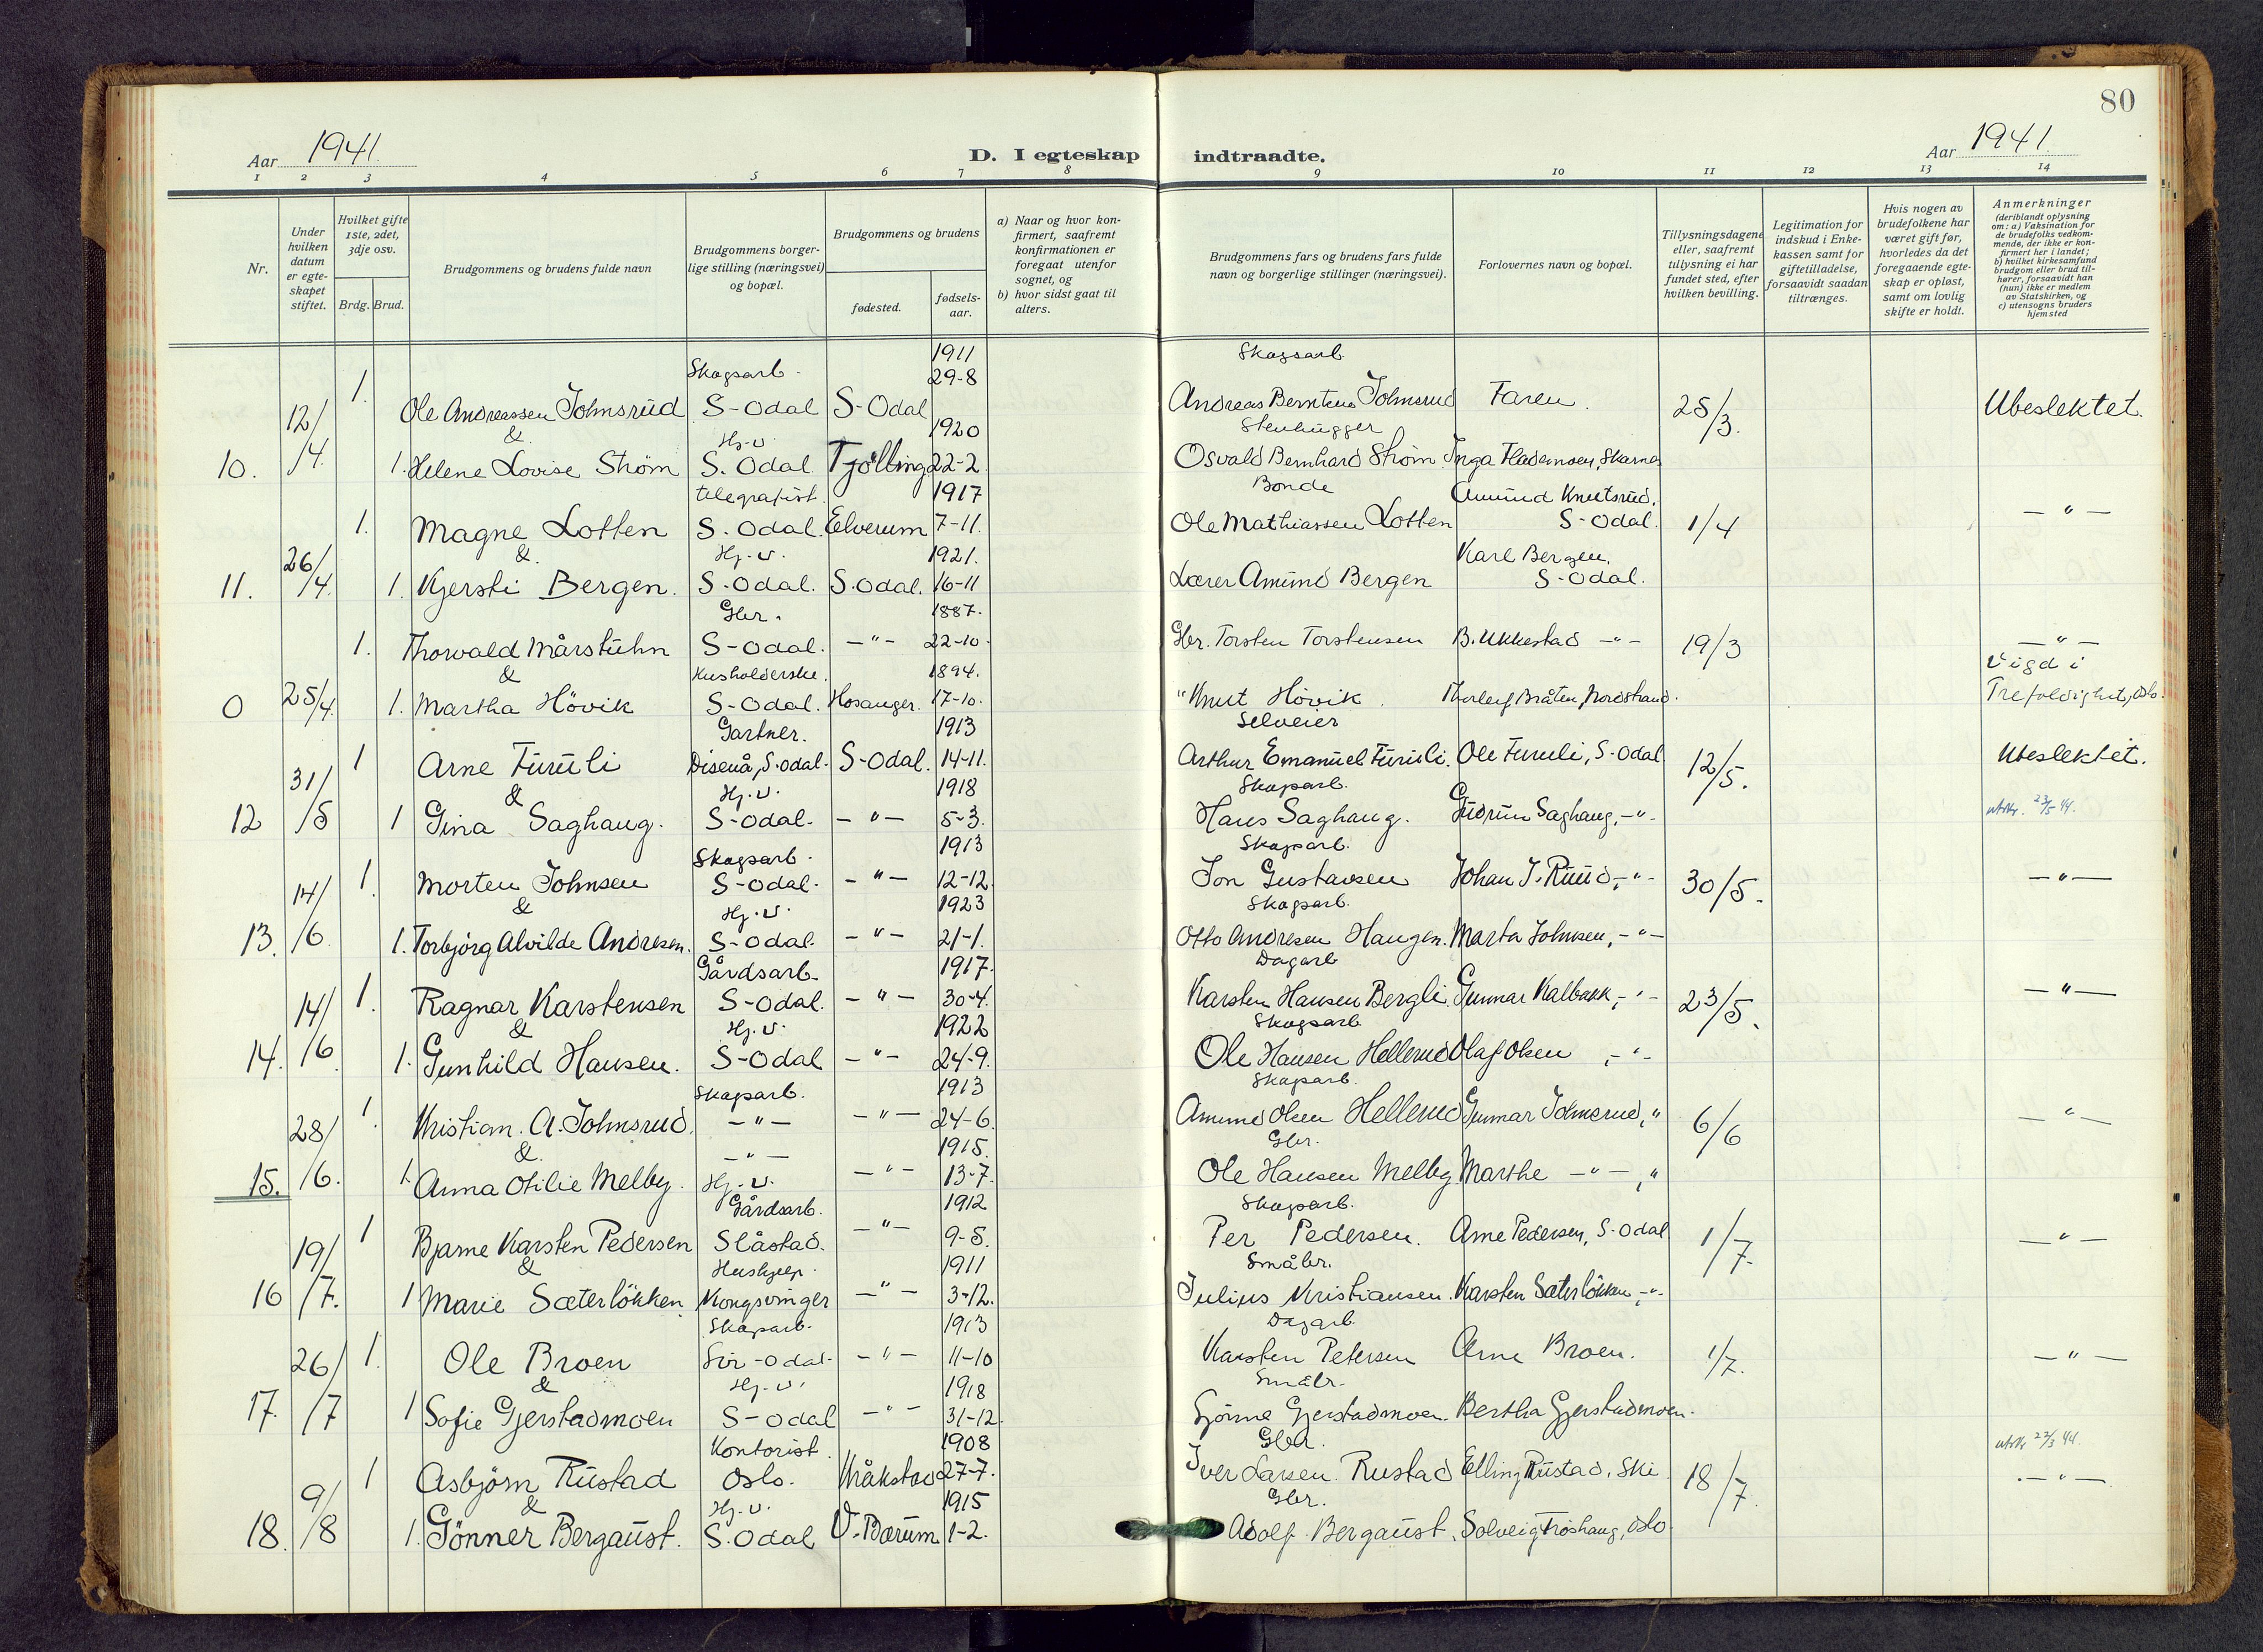 80
Aar 1941.
D. I egteskap indtraadte.
Aar 1941.
1 2 3 4 5 6 7 8 9 10 11 12 13 14
Nr.
Under hvilken datum er egteskapet stiftet.
Hvilket gifte 1ste, 2det, 3dje osv.
Brdg. Brud.
Brudgommens og brudens fulde navn
Brudgommens borgerlige stilling (næringsvei) og bopæl.
Brudgommens og brudens
fødested.
fødselsaar.
a) Naar og hvor konfirmert, saafremt konfirmationen er foregaat utenfor sognet, og
b) hvor sidst gaat til alters.
Brudgommens fars og brudens fars fulde navn og borgerlige stillinger (næringsvei).
Forlovernes navn og bopæl.
Tillysningsdagene eller, saafremt tillysning ei har fundet sted, efter hvilken bevilling.
Legitimation for indskud i Enkekassen samt for giftetilladelse, forsaavidt saadan tiltrænges.
Hvis nogen av brudefolkene har været gift før, hvorledes da det foregaaende egteskap er opløst, samt om lovlig skifte er holdt.
Anmerkninger
(deriblandt oplysning om: a) Vaksination for de brudefolks vedkommende, der ikke er konfirmert her i landet;
b) hvilket kirkesamfund brudgom eller brud tilhører, forsaavidt han (hun) ikke er medlem av Statskirken, og
c) utensogns bruders hjemsted
Skogsarb. 1911 Skogsarb.
1. Ole Andreassen Johnsrud S-Odal S-Odal 29-8 Andreas Berntsen Johnsrud Faren. 25/3. Ubeslektet.
12/4. & Hj.v. 1920 Stenhugger
10. 1. Helene Lovise Strøm S. Odal Tjølling 22-2 Osvald Bernhard Strøm. Inga Flademoen, Skarnes
telegrafist. 1917 Bonde Amund Knutsrud.
1. Magne Lotten S. Odal. Elverum 7-11. Ole Mathiassen Lotten S-Odal. 1/4 -"-
26/4. & Hj.v. 1921. Karl Bergen.
11. 1. Kjersti Bergen. S-Odal. S.Odal. 16-11 Lærer Amund Bergen S-Odal.
Gbr. 1887.
1. Thorvald Mårstuhn S-Odal. -"- 22-10. Gbr. Torsten Torstensen B. Ukkestad -"- 19/3 -"-
& Husholderske. 1894. Vigd i
0 25/4. 1. Martha Hövik S-Odal. Hosanger. 17-10. " Knut Hövik. Thorleif Bråten, Nordstrand. Trefoldighet, Oslo.
Gartner. 1913 Selveier
1 Arne Furuli Disenå, S.odal. S-Odal. 14-11. Arthur Emanuel Furuli. Ole Furuli, S-Odal 12/5. Ubeslektet.
31/5 & Hj.v. 1918 Skogsarb.
12 1 Gina Saghaug. S-Odal. -"- 5-3. Hans Saghaug. Gudrun Saghaug, -"-
Skogsarb. 1913 Skogsarb.
1. Morten Johnsen S-Odal. -"- 12-12. Jon Gustavsen Johan J. Ruud, -"- 30/5. -"-
14/6. & Hj.v. 1923 Skogsarb.
13. 1. Torbjørg Alvilde Andresen. S-Odal. -"- 21-1. Otto Andresen Haugen. Marta Johnsen, -"-
Gårdsarb. 1917. Dagarb
1. Ragnar Karstensen S-Odal. -"- 30-4. Karsten Hansen Bergli. Gunnar Kalbakk, -"- 23/5. -"-
14/6 & Hj.v. 1922 Skogsarb
14. 1. Gunhild Hansen. S-Odal -"- 24-9. Ole Hansen Hellerud Olaf Olsen, -"-
Skogsarb. 1913 Skogsarb.
1. Kristian. A. Johnsrud. -"- -"- 24-6. Amund Olsen Hellerud Gunnar Johnsrud, " 6/6 -"-
28/6. & -"- 1915. Gbr.
15. 1. Anna Otilie Melby. Hj.v. -"- 13-7. Ole Hansen Melby. Marthe -"-, "
Gårdsarb. 1912 Skogsarb.
1 Bjarne Karsten Pedersen Slåstad. -"- 9-5. Per Pedersen. Arne Pedersen, S-Odal 1/7. -"-
19/7. & Hushjelp. 1911 Småbr.
16 1 Marie Sæterløkken Kongsvinger -"- 3-12. Julius Kristiansen. Karsten Sæterløkken, -"-
Skogsarb. 1913 Dagarb.
1. Ole Broen Sør-Odal. -"- 11-10 Karsten Petersen Arne Broen. 1/7. -"-
26/7 & Hj.v. 1918 Småbr.
17. 1 Sofie Gjerstadmoen S-Odal -"- 31-12. Gjerstadmoen. Bertha Gjerstadmoen.
Kontorist. 1908 Gbr.
1 Asbjørn Rustad Oslo. Kråkstad 27-7. Iver Larsen Rustad Elling Rustad, Ski 18/7. -"-
9/8 & Hj.v. 1915 Gbr.
18. 1. Gönner Bergaust. S.Odal V. Bærum 1-2. Adolf Bergaust, Solveig Froshaug, Oslo